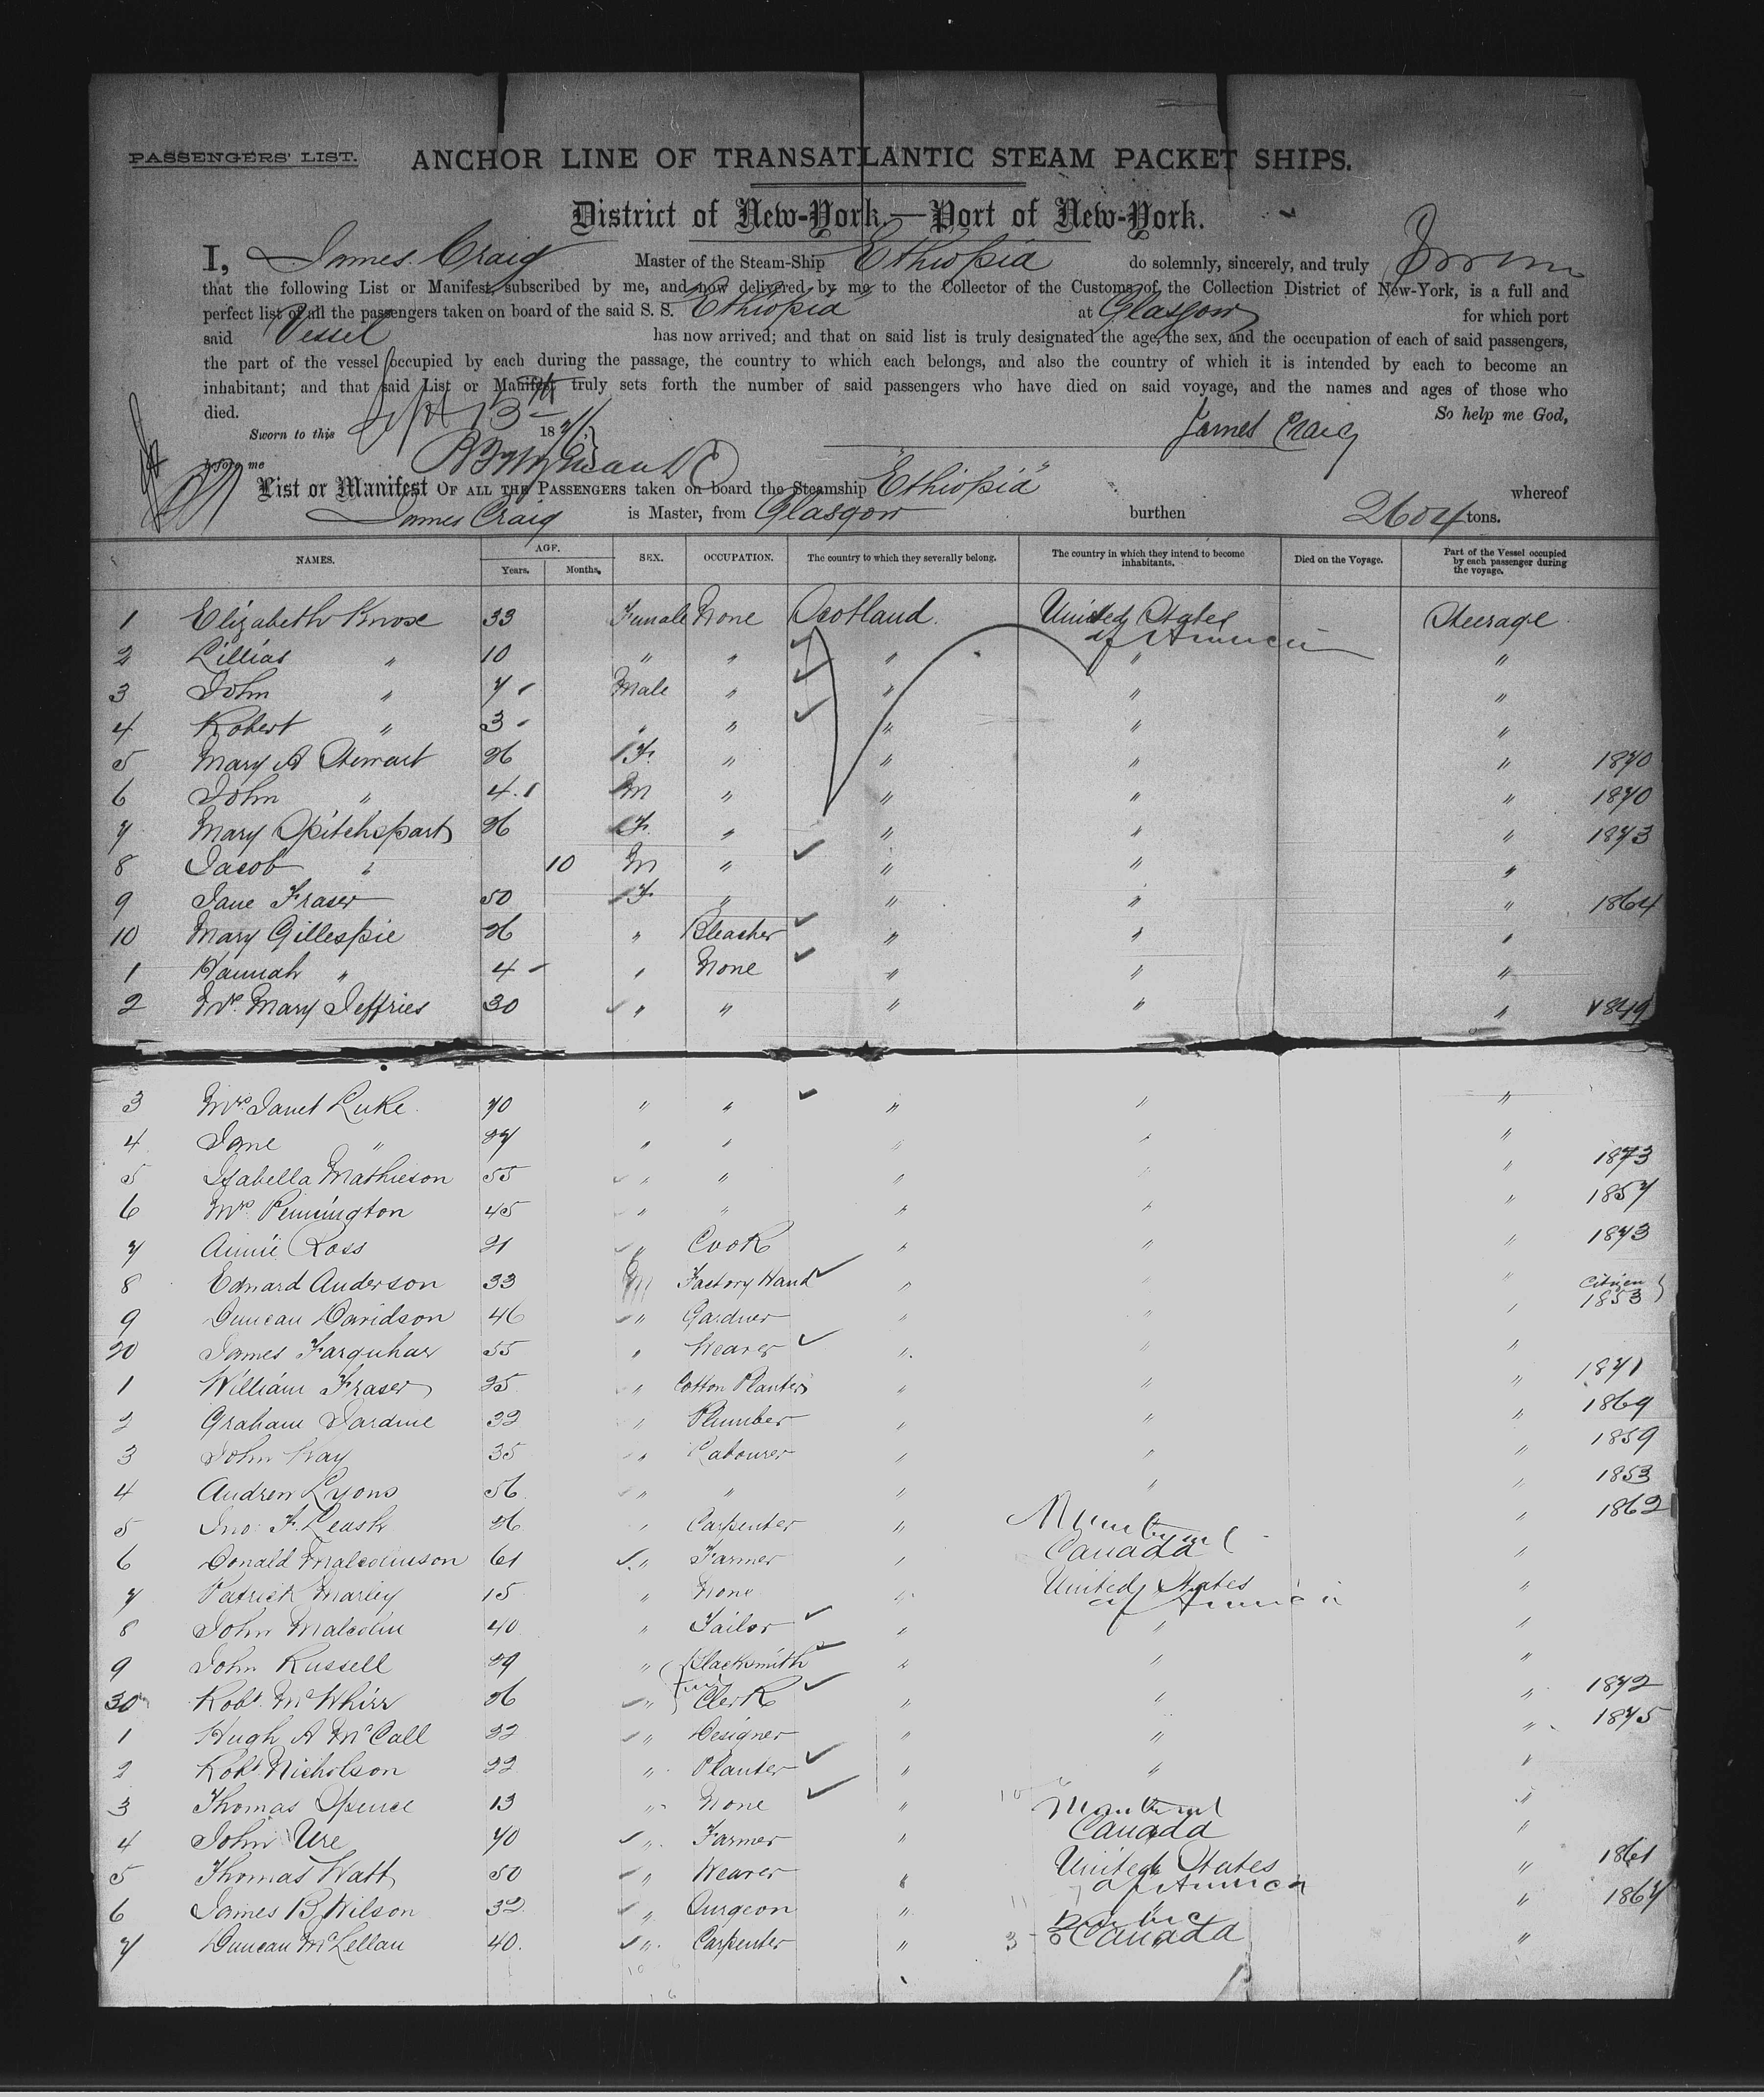 PASSENGERS' LIST.
ANCHOR LINE OF TRANSATLANTIC STEAM PACKET SHIPS.
District of New-York,—Port of New-York.
I, James Craig Master of the Steam-Ship Ethiopia do solemnly, sincerely, and truly
that the following List or Manifest, subscribed by me, and now delivered by me to the Collector of the Customs of the Collection District of New-York, is a full and
perfect list of all the passengers taken on board of the said S. S. "Ethiopia" at Glasgow for which port
said Vessel has now arrived; and that on said list is truly designated the age, the sex, and the occupation of each of said passengers,
the part of the vessel occupied by each during the passage, the country to which each belongs, and also the country of which it is intended by each to become an
inhabitant; and that said List or Manifest truly sets forth the number of said passengers who have died on said voyage, and the names and ages of those who
died. So help me God,
Sworn to this Sept 13th 18 James Craig
before me
List or Manifest OF ALL THE PASSENGERS taken on board the Steamship "Ethiopia" whereof
James Craig is Master, from Glasgow burthen 2604 tons.
NAMES. AGE. Years. Months. SEX. OCCUPATION. The country to which they severally belong. The country in which they intend to become inhabitants. Died on the Voyage. Part of the Vessel occupied by each passenger during the voyage.
1 Elizabeth Knox 33 Female None Scotland. United States of America Steerage
2 Lillias " 10 " " " " "
3 John " 7 Male " " " "
4 Robert " 3 " " " " "
5 Mary A Stewart 26 F. " " " " 1870
6 John " 4 M " " " " 1870
7 Mary Spitchspart 26 F. " " " " 1873
8 Jacob " 10 M " " " "
9 Jane Fraser 50 F. " " " " 1864
10 Mary Gillespie 26 " Bleacher " " "
1 Hannah " 4 " None " " "
2 Mrs. Mary Jeffries 30 " " " " " 1849
3 Mrs. Janet Luke 70 " " " " "
4 Jane " 27 " " " " "
5 Isabella Mathieson 55 " " " " " 1873
6 Mrs. Pennington 45 " " " " " 1857
7 Annie Ross 21 " Cook " " " 1873
8 Edward Anderson 33 M Factory Hand " " " Citizen
9 Duncan Davidson 46 " Gardner " " " 1853
20 James Farquhar 55 " Weaver " " "
1 William Fraser 25 " Cotton Planter " " " 1871
2 Graham Jardine 32 " Plumber " " " 1869
3 John Kay 35 " Labourer " " " 1859
4 Andrew Lyons 56 " " " " " 1853
5 Jno. F. Leask 26 " Carpenter " Montreal " 1862
6 Donald Malcolmson 61 " Farmer " Canada "
7 Patrick Marley 15 " None " United States of America "
8 John Malcolm 40 " Tailor " " "
9 John Russell 29 " Blacksmith " " "
30 Robt. McWhirr 26 " Clerk " " " 1872
1 Hugh A McCall 22 " Designer " " " 1875
2 Robt. Nicholson 22 " Planter " " "
3 Thomas Spence 13 " None " Montreal "
4 John Ure 70 " Farmer " Canada "
5 Thomas Watt 50 " Weaver " United States of America " 1861
6 James B Wilson 32 " Surgeon " " 1867
7 Duncan McLellan 40. " Carpenter " 3 Canada "